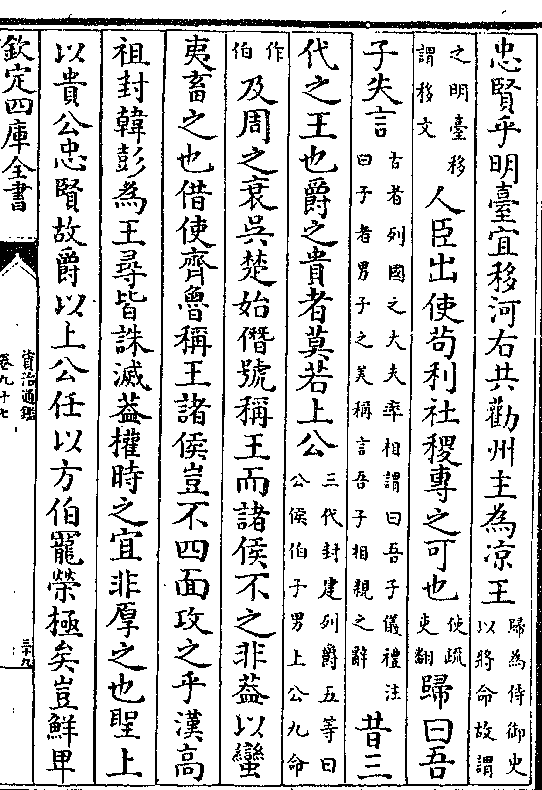 忠賢乎明臺宜移河右共勸州主為凉王歸為侍御史以將命故謂
之明臺移謂移文人臣出使苟利社稷專之可也使疏吏翻歸曰吾
子失言古者列國之大夫率相謂曰吾子儀禮注曰子者男子之美稱言吾子相親之辭昔三
代之王也爵之貴者莫若上公三代封建列爵五等曰公侯伯子男上公九命
作伯及周之衰吳楚始僭號稱王而諸侯不之非葢以蠻
夷畜之也借使齊魯稱王諸侯豈不四面攻之乎漢高
祖封韓彭為王尋皆誅滅葢權時之宜非厚之也聖上
以貴公忠賢故爵以上公任以方伯寵榮極矣豈鮮卑
欽定四庫全書
資治通鑑
卷九十七